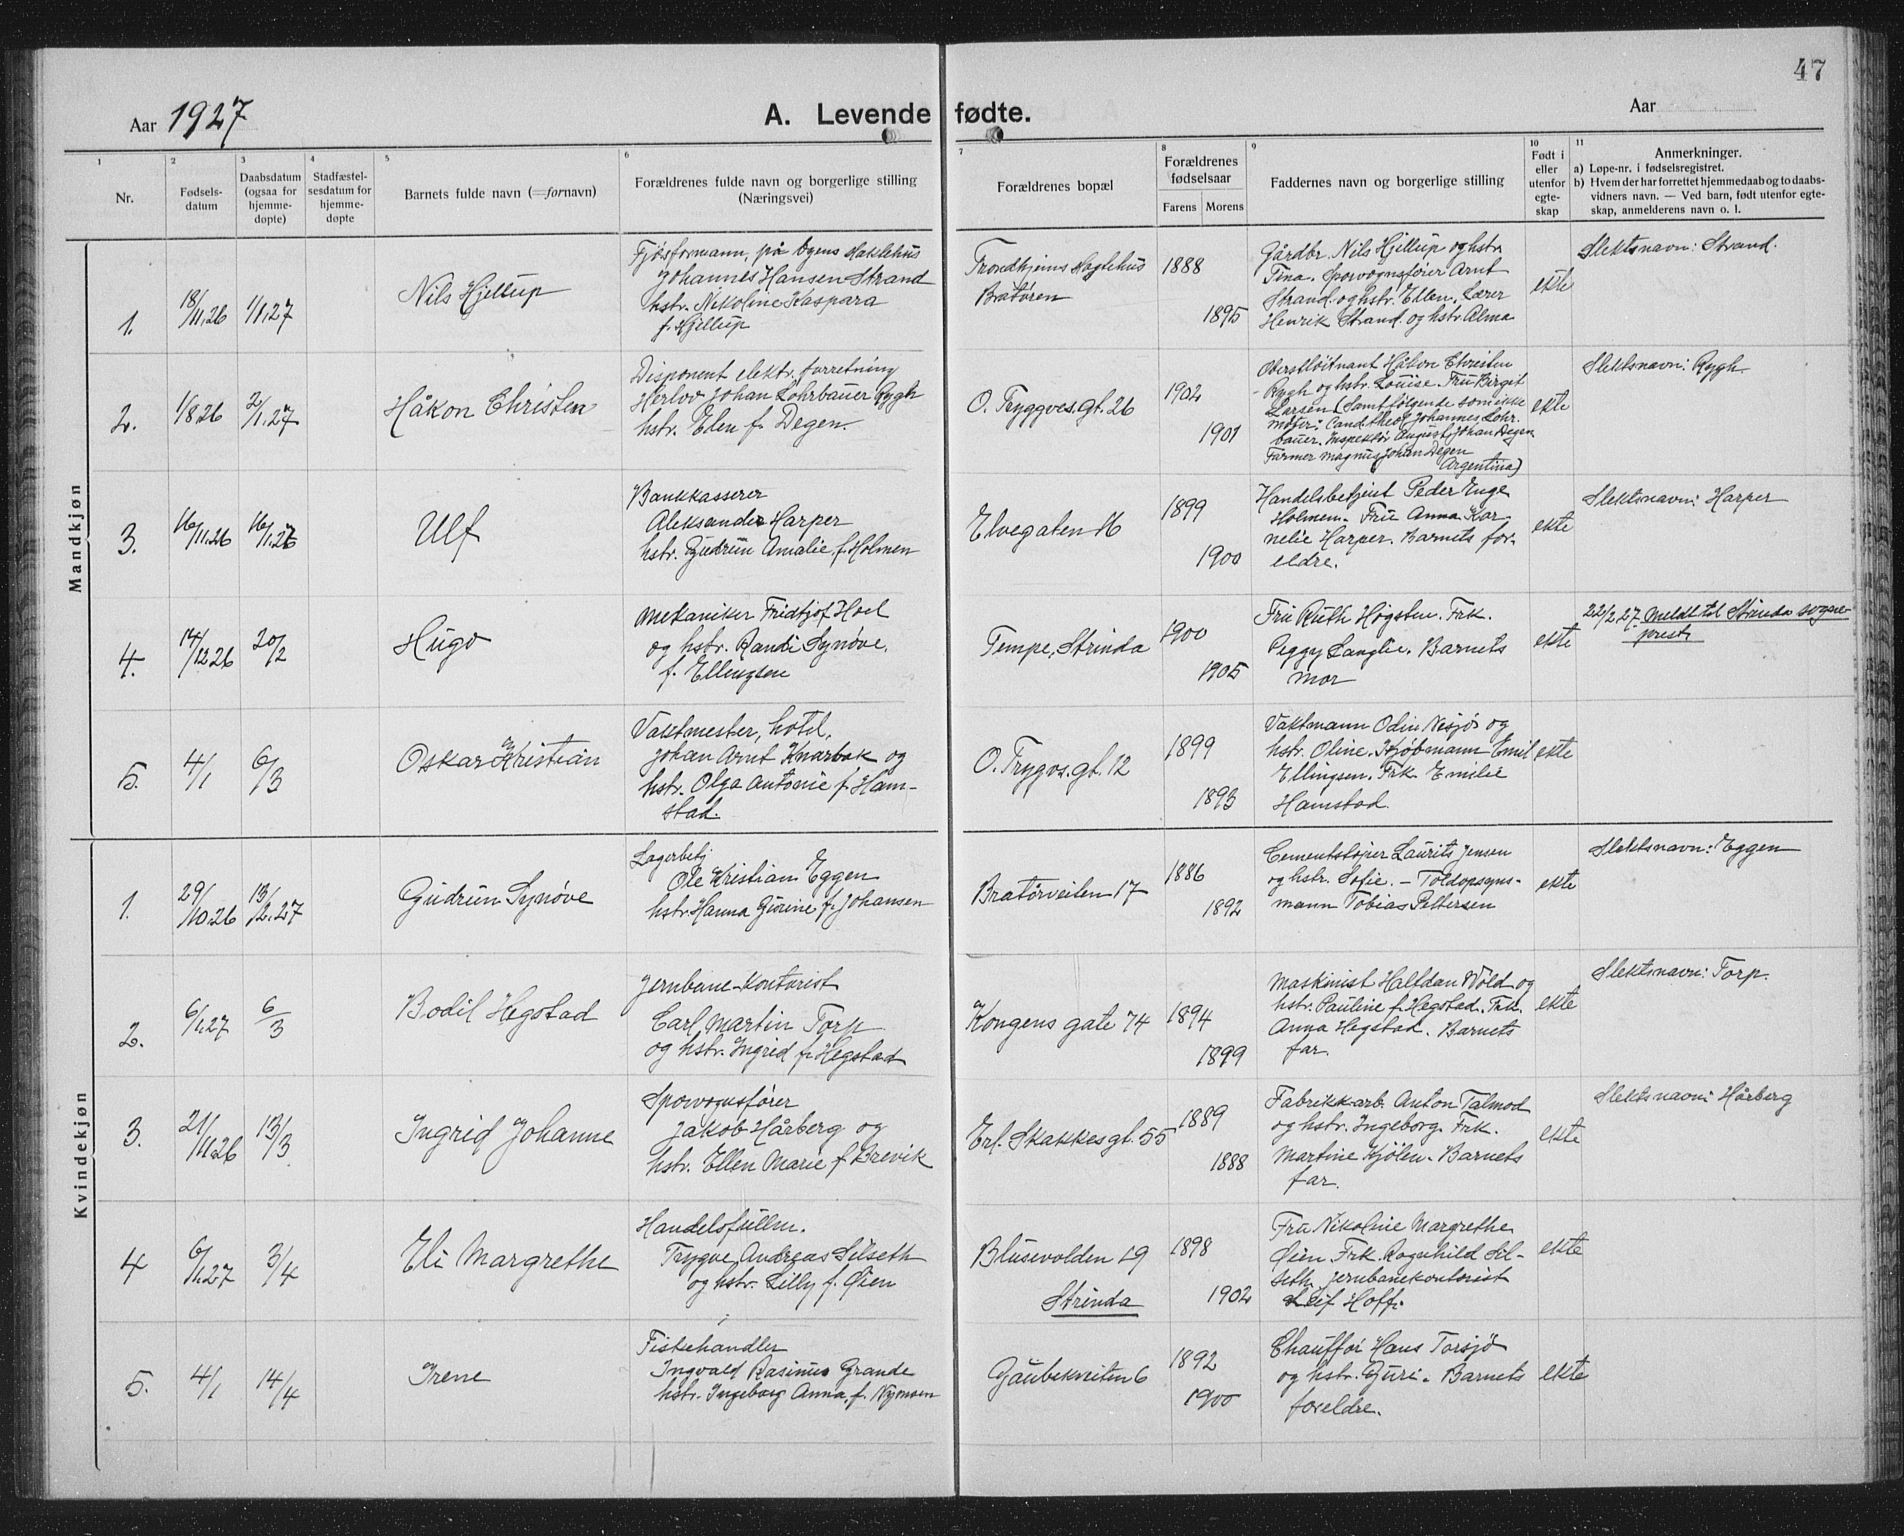 47
Aar 1927
A. Levende fødte.
Aar
1 2 3 4 5 6 7 8 9 10 11
Nr.
Fødsels-
datum
Daabsdatum
(ogsaa for
hjemme-
døpte)
Stadfæstel-
sesdatum for
hjemme-
døpte
Barnets fulde navn (=fornavn)
Forældrenes fulde navn og borgerlige stilling
(Næringsvei)
Forældrenes bopæl
Forældrenes
fødselsaar
Farens Morens
Faddernes navn og borgerlige stilling
Født i
eller
utenfor
egte-
skap
Anmerkninger.
a) Løpe-nr. i fødselsregistret.
b) Hvem der har forrettet hjemmedaab og to daabs-
vidners navn. — Ved barn, født utenfor egte-
skap, anmelderens navn o. l.
Mandkjøn
1.
18/11.26
1/1.27
Nils Hjellup
Fjøsformann, på byens slaktehus
Johannes Hansen Strand
hstr. Nikoline Kaspara
f. Hjellup
Trondhjems slagtehus
Bratøren
1888
1895
Gårdbr. Nils Hjellup og hstr.
Tina. Sporvognsfører Arnt
Strand og hstr. Ellen. Lærer
Henrik Strand og hstr Alma
ekte
Slektsnavn: Strand.
2.
1/8 26
2/1.27
Håkon Christen
Disponent elektr. forretning
Herlov Johan Lohrbauer Rygh
hstr. Elen f. Degen.
O. Tryggves. gt. 26
1902
1901
Oberstløitnant Håkon Christen
Rygh og hstr. Louise. Fru Birgit
Larsen (Samt følgende som ikke
møter: Cand. theol Johannes Lohr-
bauer. Inspektør August Johan Degen
Farmer Magnus Johan Degen
Argentina)
ekte
Slektsnavn: Rygh
3.
16/11.26
16/1.27
Ulf
Bankkasserer
Aleksander Harper
hstr. Gudrun Amalie f. Holmen
Elvegaten 16
1899
1900
Handelsbetjent Peder Enge
Holmen. Fru Anna Kor
nelie Harper. Barnets for-
eldre.
ekte
Slektsnavn: Harper
4.
14/12 26
20/2
Hugo
Mekaniker Fridtjof Hoel
og hstr. Randi Synøve.
f. Ellingsen
Tempe, Strinda
1900
1905
Fru Ruth Høgsten. Frk.
Peggy Langlie. Barnets
mor
ekte
22/2.27. Meldt til Strinda sogne-
prest
5.
4/1
6/3
Oskar Kristian
Vaktmester, hotel,
Johan Arnt Knarbak og
hstr. Olga Antonie f. Ham-
stad.
O. Trygvs. gt. 12
1899
1893
Vaktmann Odin Nesjø og
hstr. Oline. Kjøbmann Emil
Ellingsen. Frk. Emilie
Hamstad.
ekte
Kvindekjøn
1.
29/10.26
13/2.27
Gudrun Synøve
Lagerbetj
Ole Kristian Eggen
hstr. Hanna Gurine f. Johansen
Bratørveiten 17
1886
1892
Cementstøper Laurits Jensen
og hstr. Sofie. – Toldopsyns-
mann Tobias Pettersen
ekte
Slektsnavn: Eggen
2.
6/1.27
6/3
Bodil Hegstad
Jernbane-kontorist
Carl Martin Torp
og hstr. Ingrid f. Hegstad
Kongens gate 74
1894
1899
Maskinist Halfdan Wold og
hstr. Pauline f. Hegstad. Frk.
Anna Hegstad. Barnets
far.
ekte
Slektsnavn: Torp.
3.
21/11.26
13/3
Ingrid Johanne
Sporvognsfører
Jakob Hårberg og
hstr. Ellen Marie f. Brevik
Erl. Skakkes gt. 55
1889
1888
Fabrikkarb. Anton Talmod
og hstr. Ingeborg. Frk.
Martine Kjølen. Barnets
far.
ekte
Slektsnavn: Hårberg
4
6/1.27
3/4
Eli Margrethe
Handelsfullm.
Trygve Andreas Silseth
og hstr. Lilly f. Øien
Blusevolden 19
Strinda
1898
1902
Fru Nikoline Margrethe
Øien Frk. Ragnhild Sil-
seth. Jernbanekontorist
Leif Hoff.
ekte
5.
4/1
14/4
Irene
Fiskehandler
Ingvald Rasinus Grande
hstr. Ingeborg Anna f. Nymoen
Gaubekveiten 6
1892
1900
Chauffør Hans Torsjø
og hstr. Guri. Barnets
foreldre.
ekte